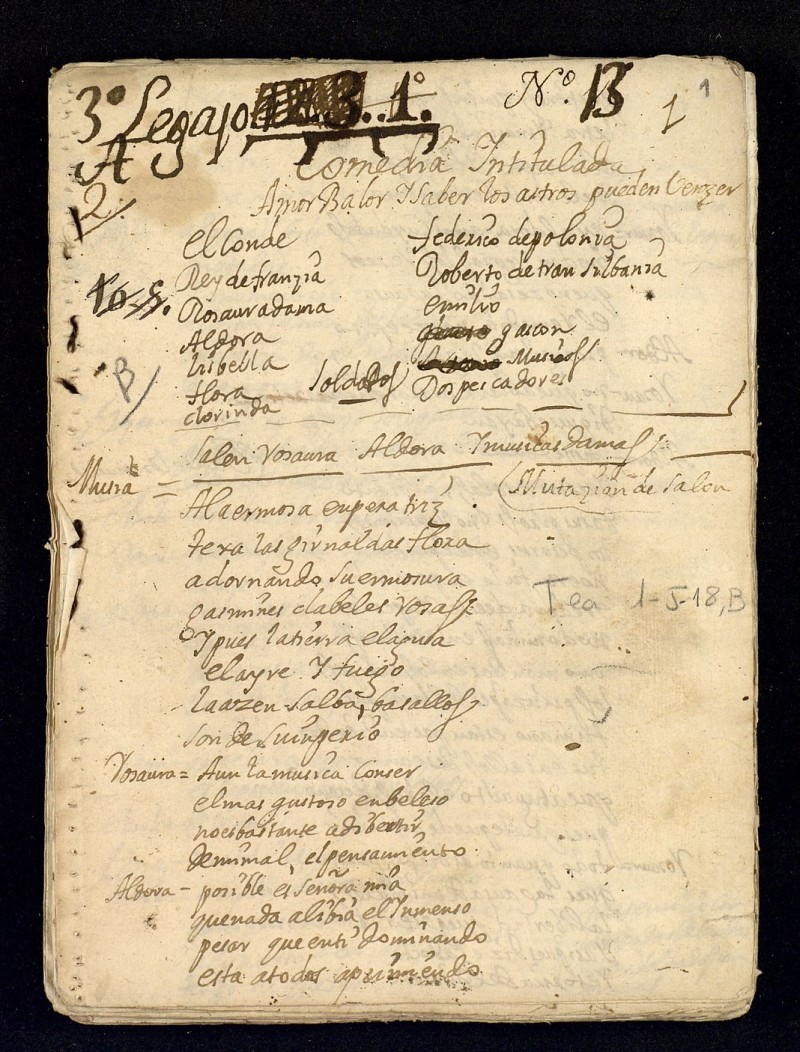 3º Legajo 1º. Nº. 13 1 1
A
2
Comedia Intitulada
Amor Balor Y Saber los astros pueden Venzer
el Conde
Rey de franzia
Rosaura dama
Aldora
lisbella
flora
clorinda
Soldados
federico de polonia
Roberto de transilbania
emilio
gascon
Musicos
Dos pescadores
B
Salen rosaura Aldora Y musicas damas
(Mutazion de Salon
Musica = A la ermosa enperatriz
texa las girnaldas flora
adornando su ermosura
gasmines clabeles rosas
Y pues la tierra el agua
el ayre Y fuego
la azen salba, basallos
son de su inperio
Tea 1-5-18, B
Rosaura = Aun la musica Conser
el mas gustoso enbeleso
no es bastante adibertir
de mi mal, el pensamiento
Aldora - posible es señora mia
que nada alibia el Inmenso
pesar que en ti dominando
esta a todos aprimiendo